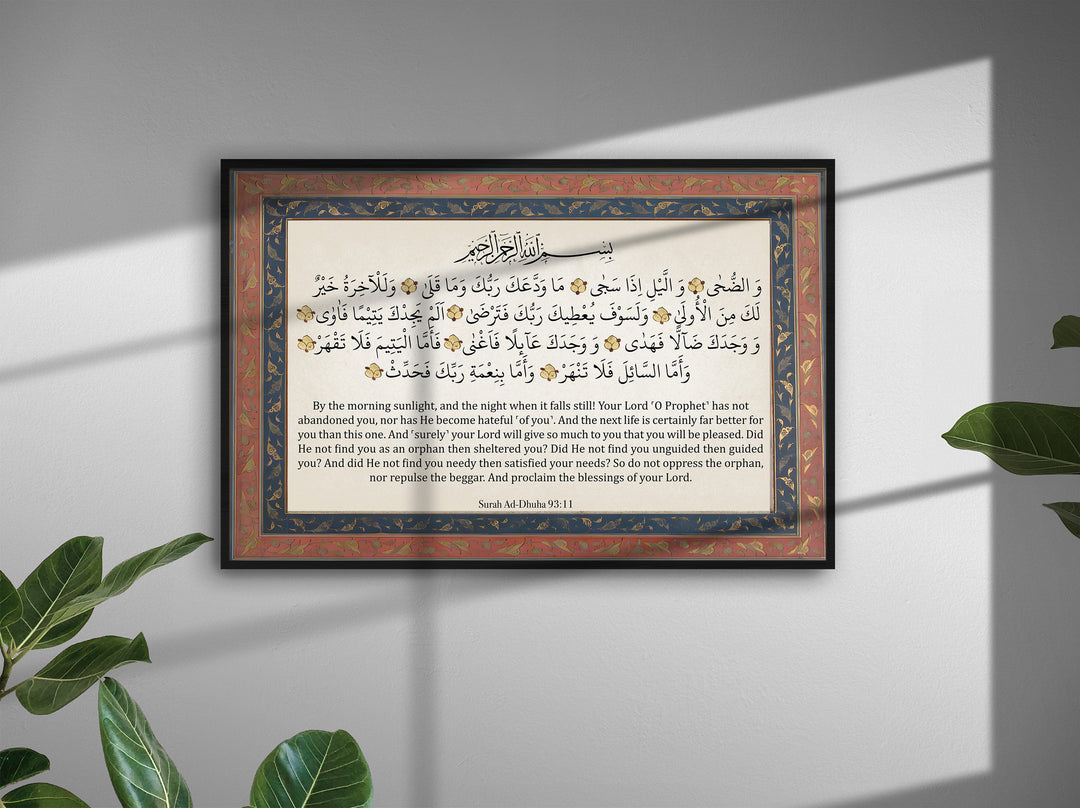 بِسْمِ اللهِ الرَّحْمٰنِ الرَّحِيْمِ
وَ الضُّحٰى وَ الَّيْلِ اِذَا سَجٰى مَا وَدَّعَكَ رَبُّكَ وَمَا قَلٰى وَلَلْآخِرَةُ خَيْرٌ
لَكَ مِنَ الْأُولٰى وَلَسَوْفَ يُعْطِيكَ رَبُّكَ فَتَرْضٰى اَلَمْ يَجِدْكَ يَتِيْمًا فَاٰوٰى
وَ وَجَدَكَ ضَآلًّا فَهَدٰى وَ وَجَدَكَ عَآىِٕلًا فَاَغْنٰى فَأَمَّا الْيَتِيمَ فَلَا تَقْهَرْ
وَأَمَّا السَّائِلَ فَلَا تَنْهَرْ وَأَمَّا بِنِعْمَةِ رَبِّكَ فَحَدِّثْ
By the morning sunlight, and the night when it falls still! Your Lord ˹O Prophet˺ has not
abandoned you, nor has He become hateful ˹of you˺. And the next life is certainly far better for
you than this one. And ˹surely˺ your Lord will give so much to you that you will be pleased. Did
He not find you as an orphan then sheltered you? Did He not find you unguided then guided
you? And did He not find you needy then satisfied your needs? So do not oppress the orphan,
nor repulse the beggar. And proclaim the blessings of your Lord.
Surah Ad-Dhuha 93:11